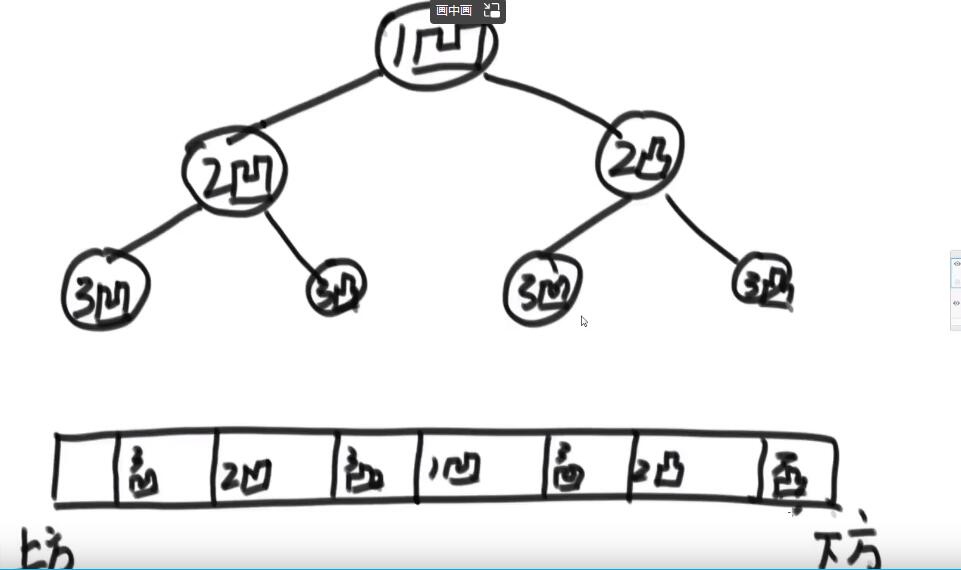 画中画
1凹
2凹 2凸
3凹 3凸 3凹 3凸
3凹 2凹 3凸 1凹 3凹 2凸 3凸
上方 下方